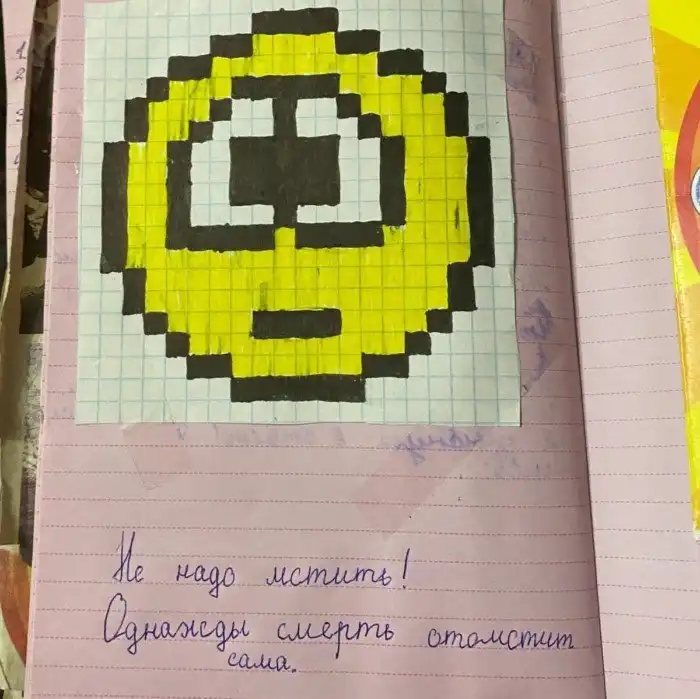 Не надо мстить!
Однажды смерть отомстит
сама.